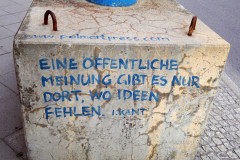 www.palmartpress.com
EINE ÖFFENTLICHE
MEINUNG GIBT ES NUR
DORT, WO IDEEN
FEHLEN. I.KANT